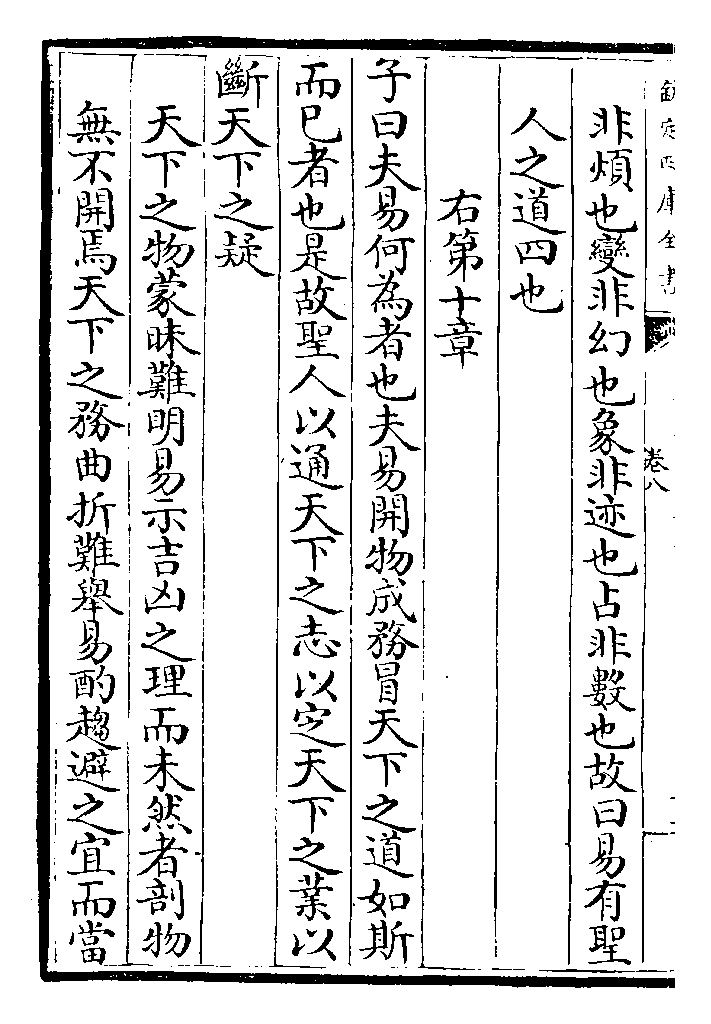 欽定四庫全書
卷八
非煩也變非幻也象非迹也占非數也故曰易有聖
人之道四也
右第十章
子曰夫易何為者也夫易開物成務冒天下之道如斯
而已者也是故聖人以通天下之志以定天下之業以
斷天下之疑
天下之物蒙昧難明易示吉凶之理而未然者剖物
無不開焉天下之務曲折難舉易酌趨避之宜而當